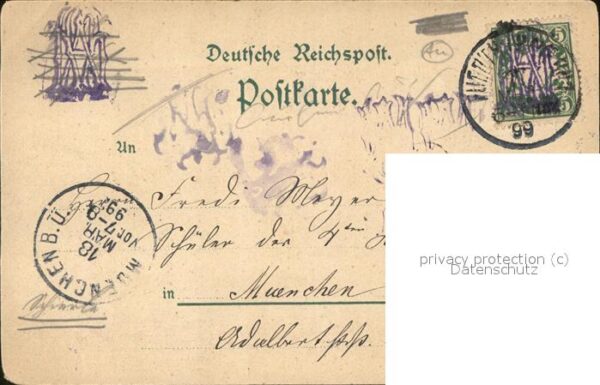 Deutsche Reichspost.
Postkarte.
5
5
99
An
Herrn Fredi Meyer
Schüler der 4ten
in Muenchen
Adalbertstr.
MUENCHEN B.U.
18
MAR.
Vor. 7-8
99
privacy protection (c)
Datenschutz